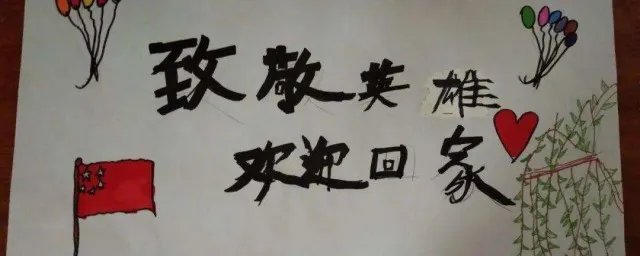 致敬英雄
欢迎回家